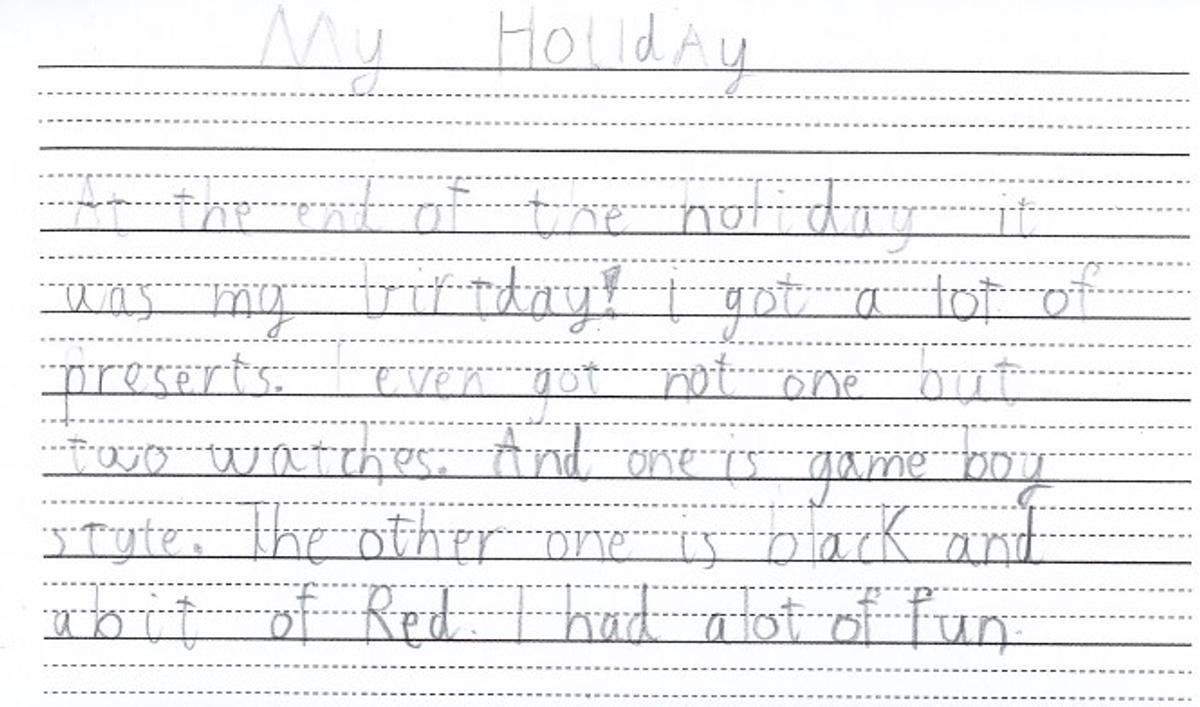 My HolIdAy
At the end of the holiday it
was my birtday! i got a lot of
preserts. I even got not one but
two watches. And one is game boy
style. The other one is black and
abit of Red. I had alot of fun.